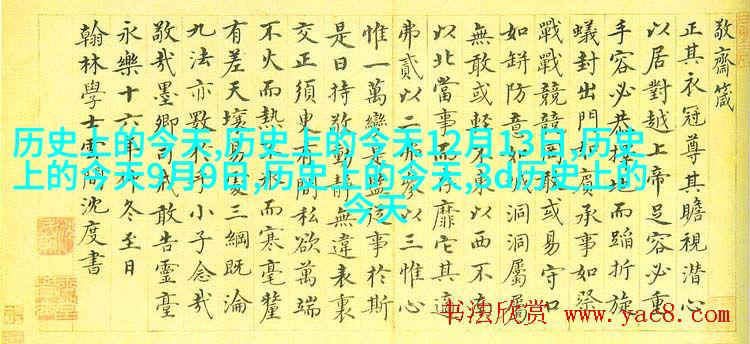 敬齋箴
正其衣冠尊其瞻視潛心
以居對越上帝足容必重
手容必恭擇地而蹈折旋
蟻封出門如賓承事如祭
戰戰兢兢罔敢或易守口
如缾防意如城洞洞屬屬
無敢或輕不東以西不南
以北當事而存靡它其適
弗貳以二弗參以三惟心
惟一萬變是監從事於斯
是曰持敬動靜無違表裏
交正須臾有間私欲萬端
不火而熱不冰而寒毫釐
有差天壤易處三綱既淪
九法亦斁於乎小子念哉
敬哉墨卿司戒敢告靈臺
永樂十六年仲冬至日
翰林學士雲間沈度書
历史上的今天,历史上的今天12月13日,历史
上的今天9月9日,历史上的今天,3d历史上的
今天
书法欣赏
www.yac8.com